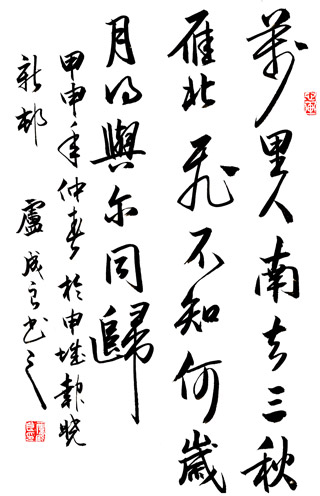 萬里人南去三秋
雁北飛不知何歲
月得與尔同歸
甲申年仲春於申城報曉
新邨 盧成书之